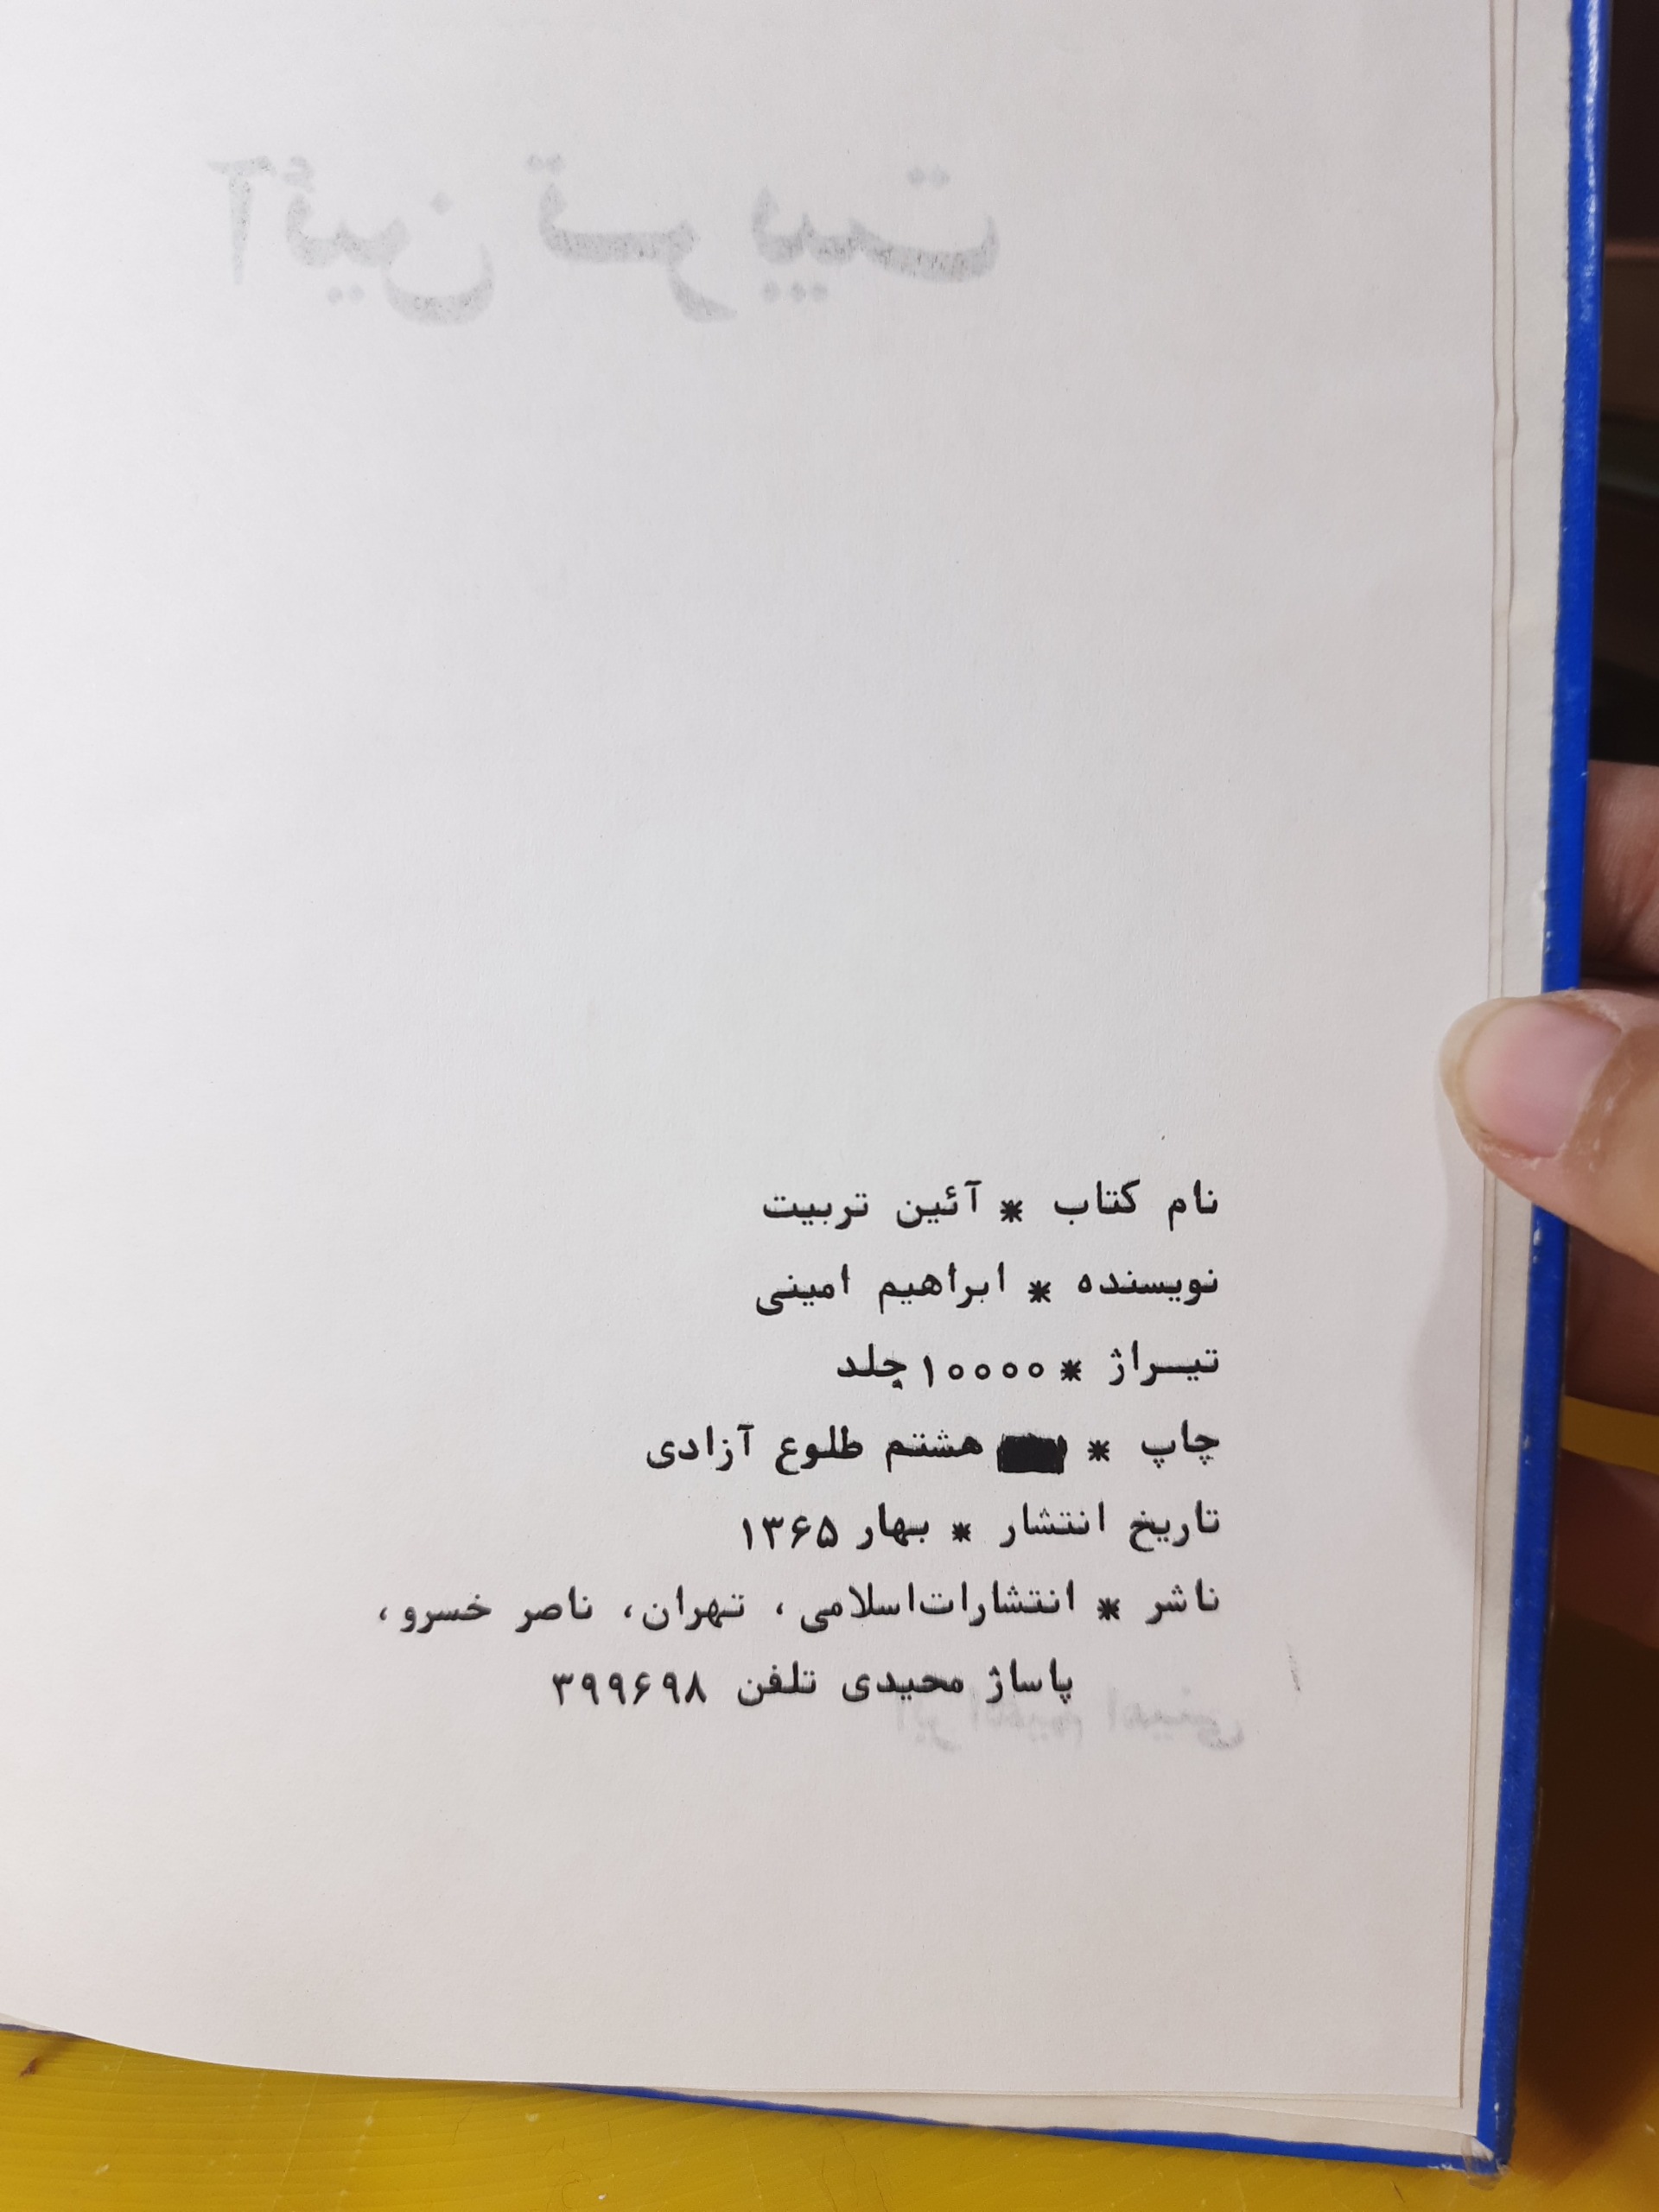 آئین تربیت
نام کتاب * آئین تربیت
نویسنده * ابراهیم امینی
تیـراژ * ۱۰۰۰۰ جلد
چاپ * هشتم طلوع آزادی
تاریخ انتشار * بهار ۱۳۶۵
ناشر * انتشارات‌اسلامی ، تهران، ناصر خسرو،
پاساژ محیدی تلفن ۳۹۹۶۹۸
ابراهیم امینی